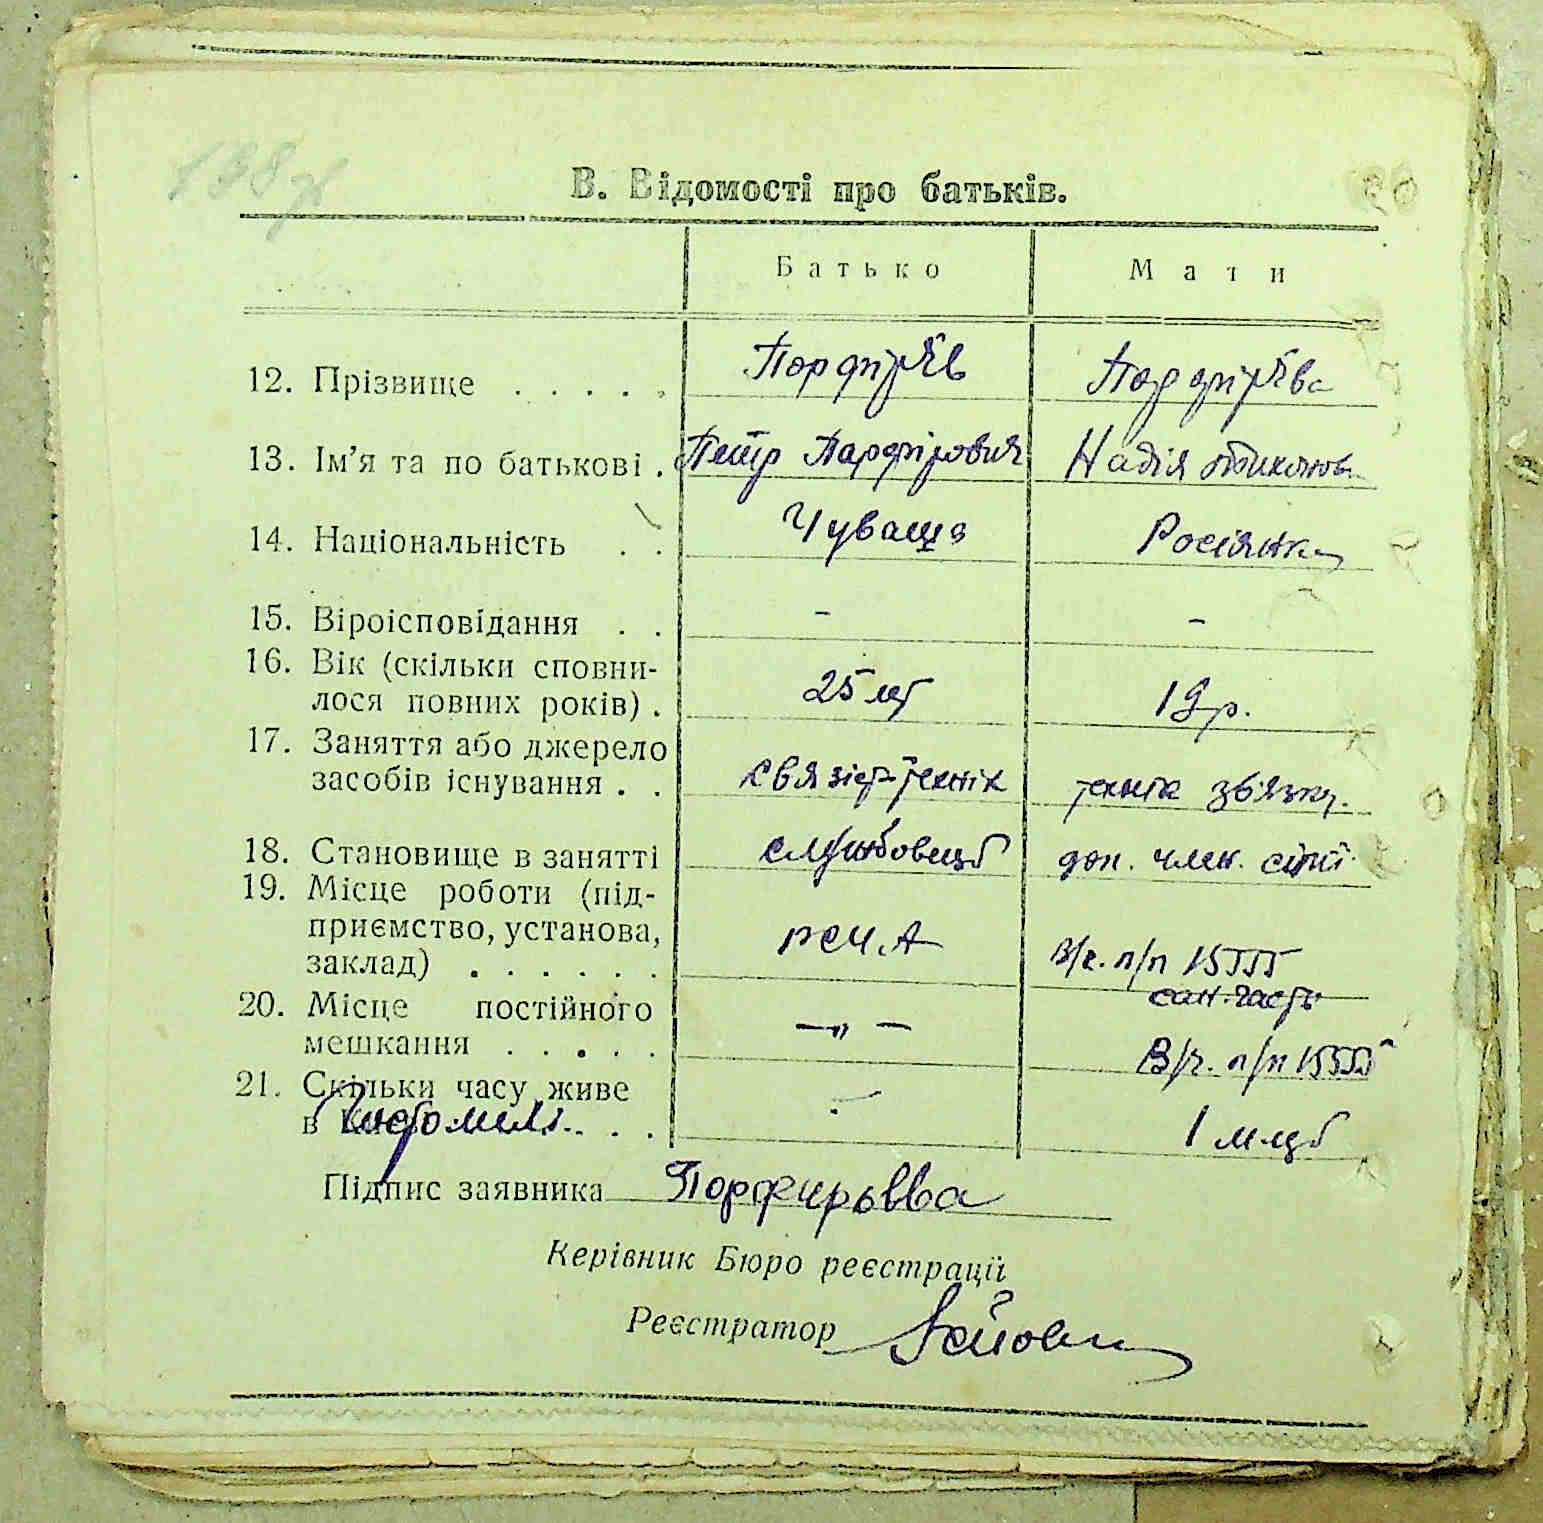 138
В. Відомості про батьків.
Батько Мати
12. Прізвище . . . . . Порфірʼєв Порфірʼєва
13. Ім’я та по батькові . Петр Парфірович Надія
14. Національність . . Чуваш Росіянка
15. Віроісповідання . . - -
16. Вік (скільки сповни-
лося повних років) . 25 лет 19 р.
17. Заняття або джерело
засобів існування . . связіст-технік технік звʼязку.
18. Становище в занятті службовець доп. член. сімʼї
19. Місце роботи (під-
приємство, установа,
заклад) . . . . . . РСЧ.А В/ч. п/п 15555
сан. часть
20. Місце постійного
мешкання . . . . . —„— В/ч. п/п 15555
21. Скільки часу живе
в Житомирі . . . - 1 м-ць
Підпис заявника Порфирьева
Керівник Бюро реєстрації
Реєстратор